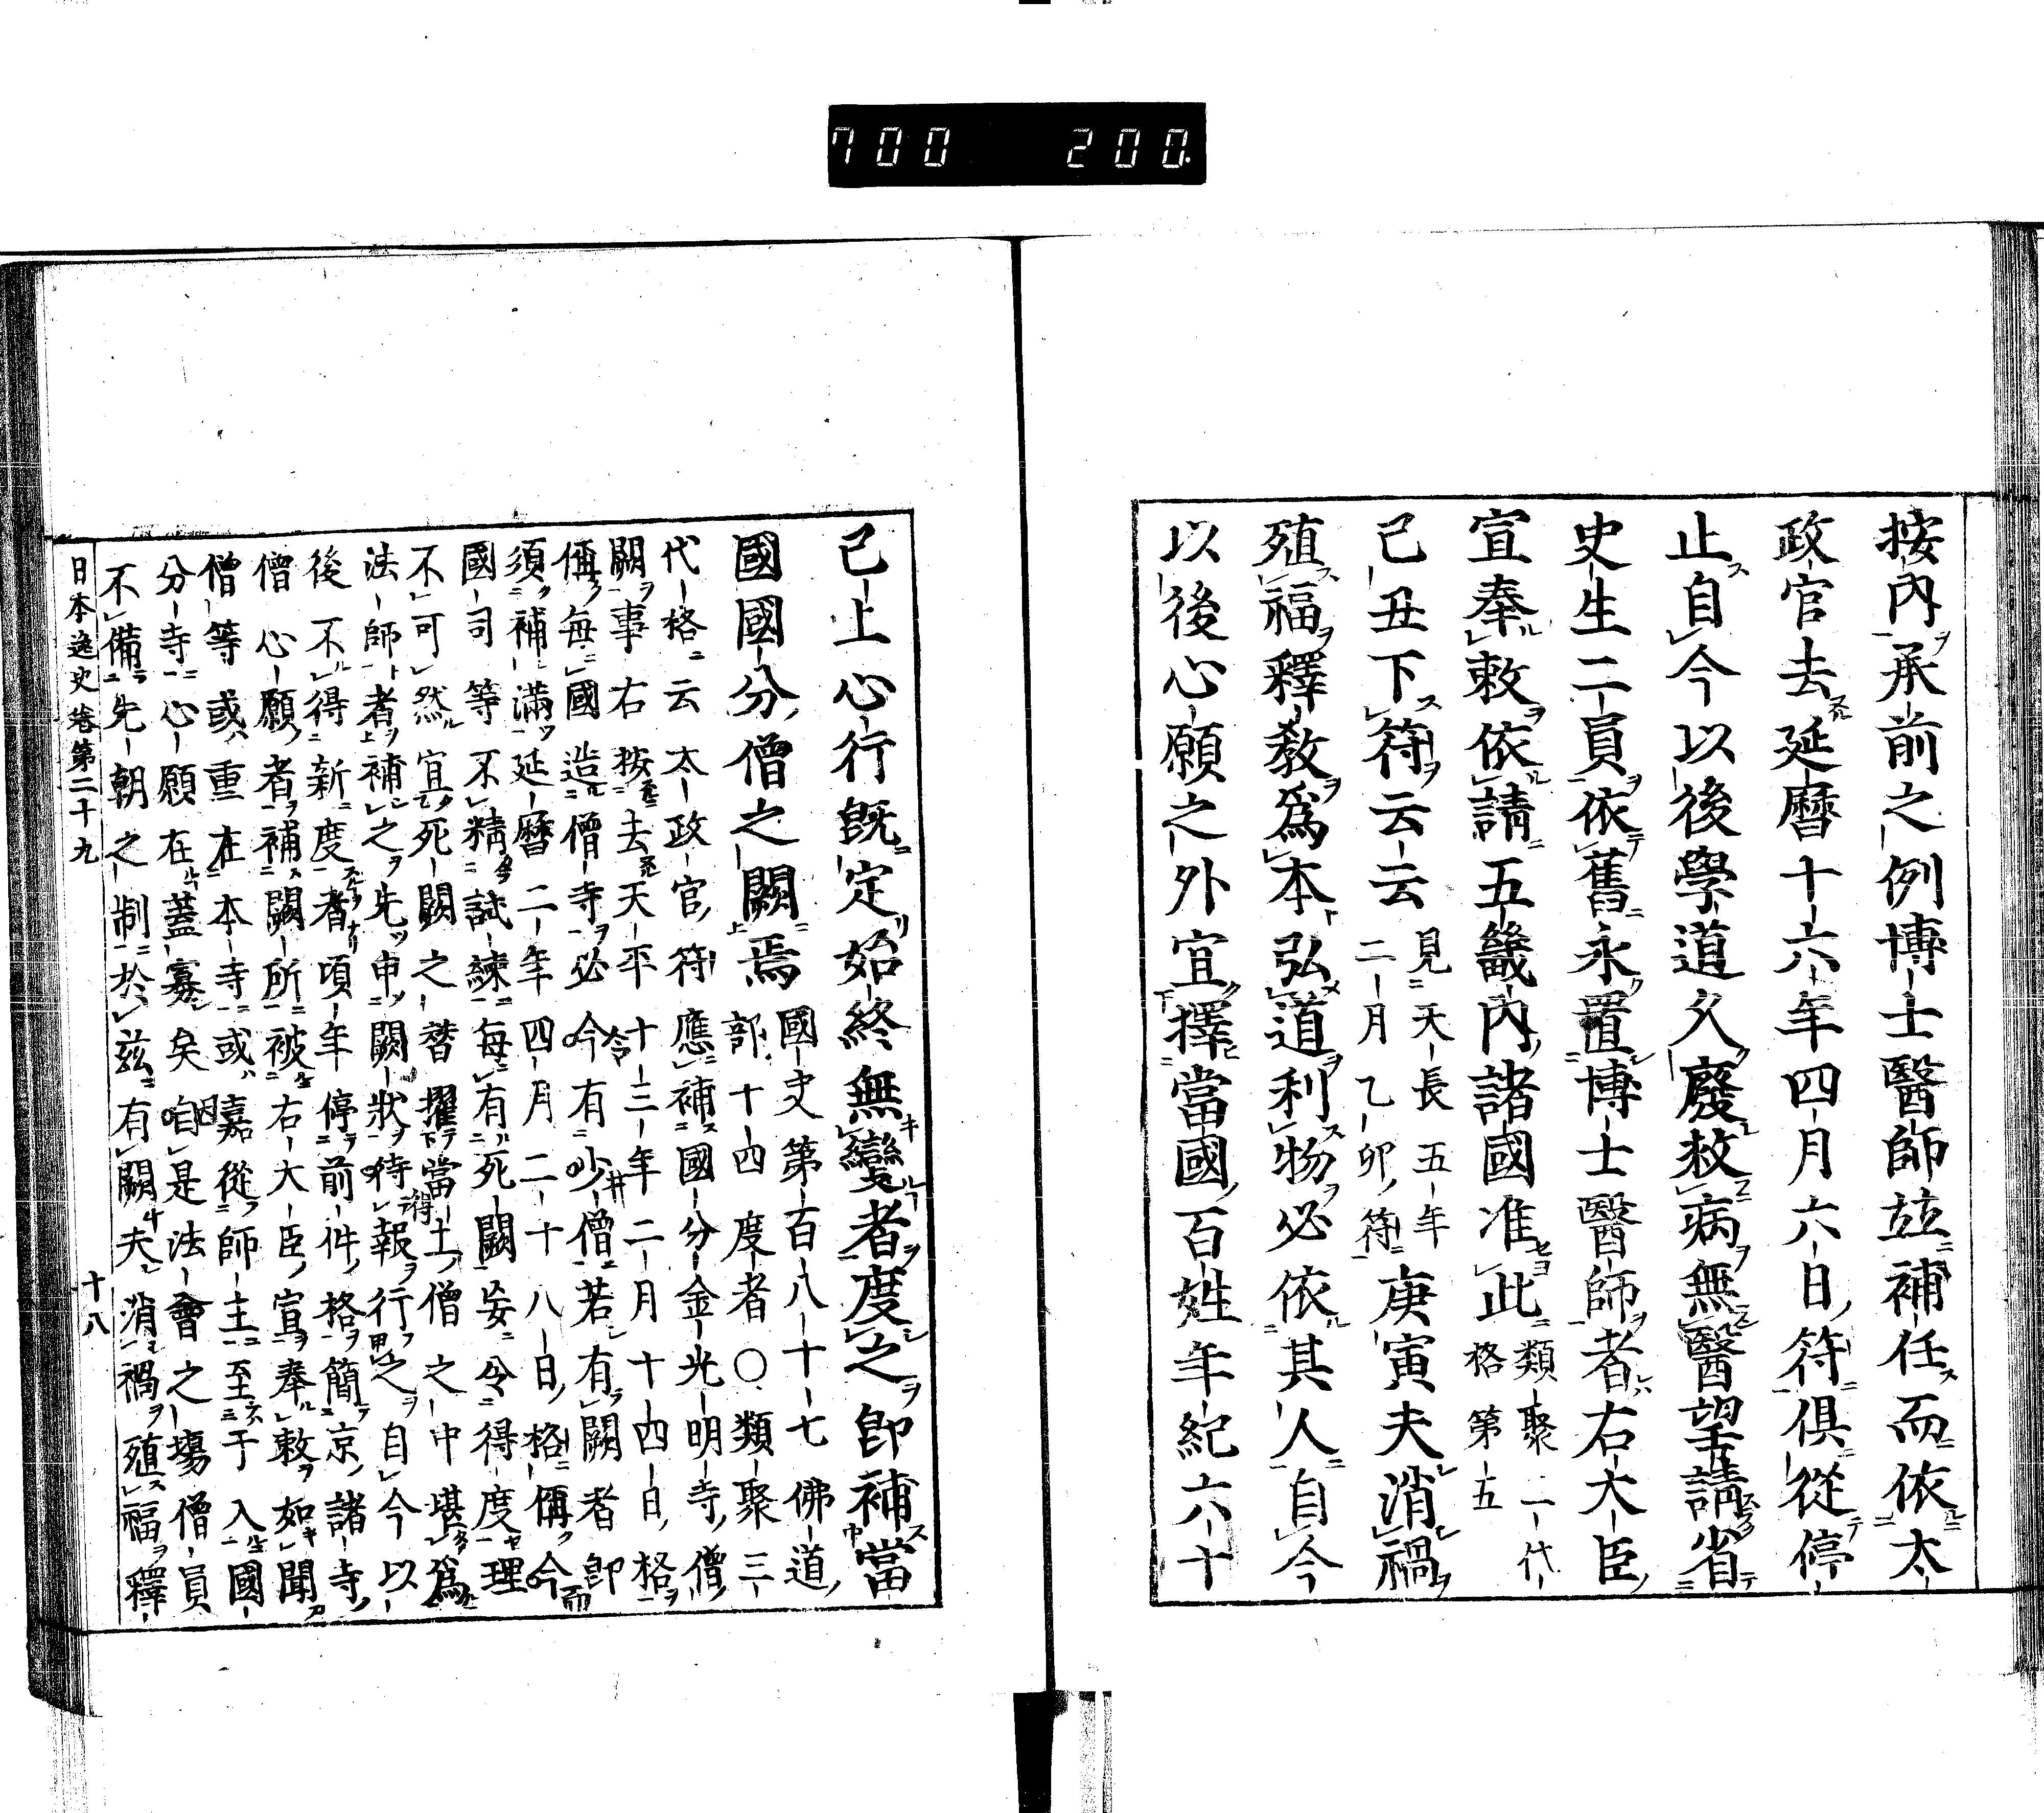 700 200.
按內承前之例博士醫師竝補任而依太
政官去延曆十六年四月六日符俱從停
止自今以後學道久廢救病無醫望請省
史生二員依舊永置博士醫師者右大臣
宣奉敕依請五畿內諸國准此類聚三代格第五
己丑下符云云見天長五年二月乙卯符庚寅夫消禍
殖福釋教為本弘道利物必依其人自今
以後心願之外宜擇當國百姓年紀六十
已上心行既定始終無變者度之卽補當
國國分僧之闕焉國史第百八十七佛道部十四度者○類聚三
代格云太政官符應補國分金光明寺僧
闕事右按去天平十三年二月十四日格
偁每國造僧寺必今有少僧若有闕者卽
須補滿延曆二年四月二十八日格偁今
國司等不精試練每有死闕妄令得度理
不可然宜死闕之替擢當土僧之中堪為
法師者補之先申闕狀待報行之自今以
後不得新度者頃年停前件格簡京諸寺
僧心願者補闕所被右大臣宣奉敕如聞
僧等或重在本寺或嘉從師主至于入國
分寺心願在蓋寡矣咱是法會之場僧員
不備先朝之制於茲有闕夫消禍殖福釋
日本逸史卷第二十九 十八